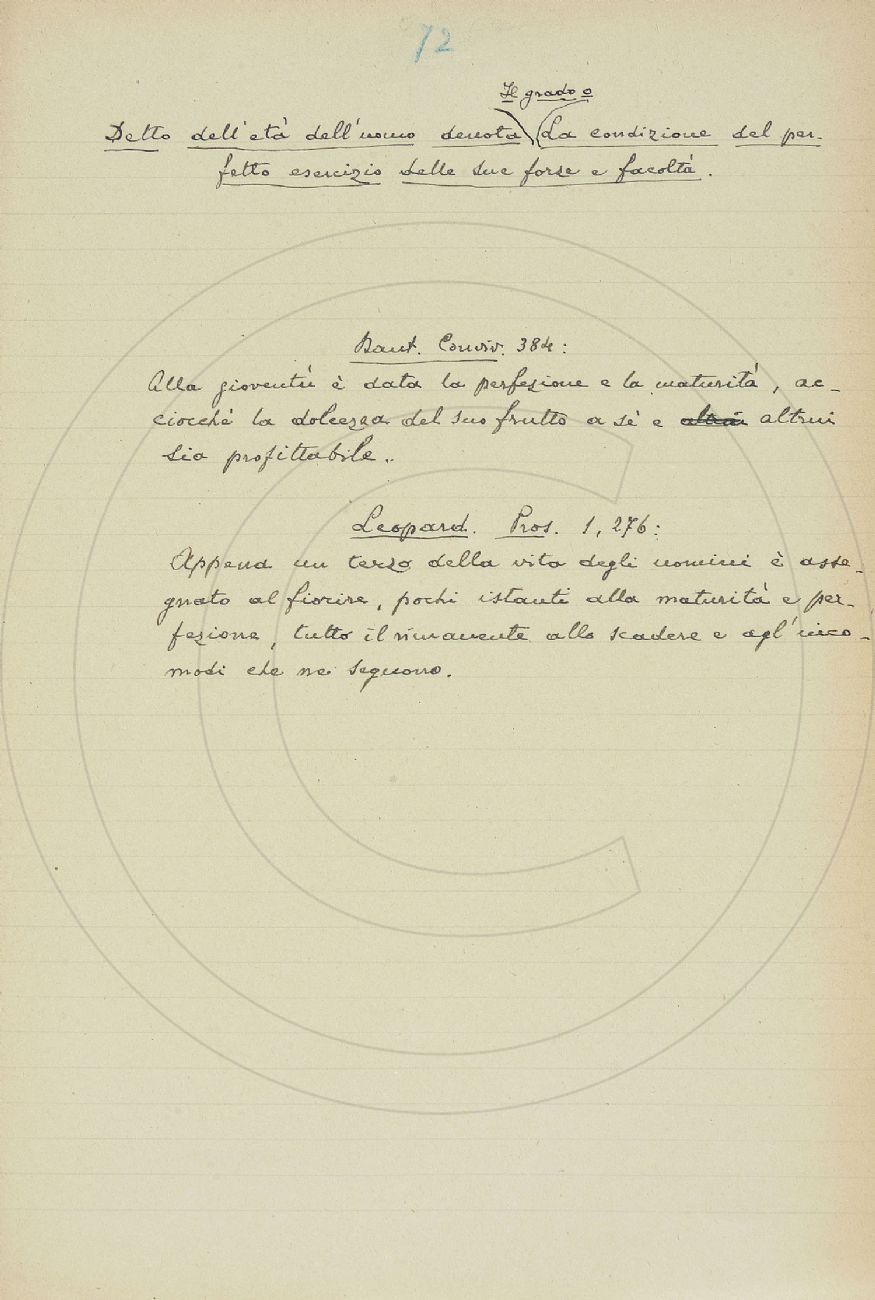 72
Il grado o
Detto dell'età dell'uomo denota La condizione del per-
fetto esercizio delle sue forze e facoltà.
Dant. Conviv. 384:
Alla gioventù è data la perfezione e la maturità, ac-
ciocchè la dolcezza del suo frutto a sè e altrui altrui
sia profittabile.
Leopard. Pros. 1, 276:
Appena un terzo della vita degli uomini è asse-
gnato al fiorire, pochi istanti alla maturità e per-
fezione, tutto il rimanente allo scadere e agl'inco-
modi che ne seguono.